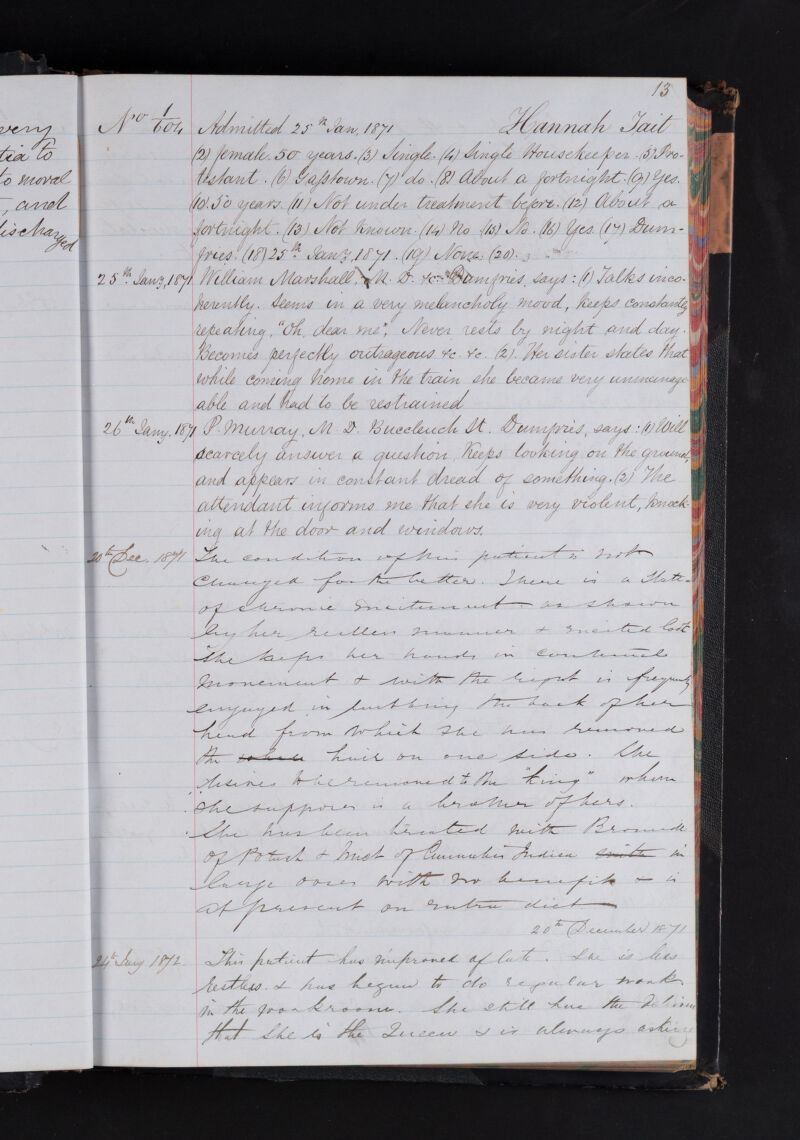 very
tia to
to moral
, and
discharged
13
No 1/604 Admitted 25th Jan, 1871 Hannah Tait
(2) female. 50 years. (3) Single. (4) Single Housekeeper. (5) Pro-
testant. (6) Gasstown. (7) do. (8) About a fortnight. (9) Yes.
(10) 50 years. (11) Not under treatment before. (12) About a
fortnight. (13) Not known. (14) No (15) No. (16) Yes (17) Dum-
fries. (18) 25th Jany, 1871. (19) None. (20).
25th Jany, 1871 William Marshall, M. D. &c Dumfries, says: (1) Talks inco-
herently. Seems in a very melancholy mood, keeps constantly
repeating, "Oh, dear me", Never rests by night and day.
Becomes perfectly outrageous &c. &c. (2). Her sister states that
while coming home in the train she became very unmanage-
able and had to be restrained
26th Jany, 1871 P. Murray, M. D. Buccleuch St. Dumfries, says: (1) Will
scarcely answer a question, Keeps looking on the ground,
and appears in constant dread of something. (2) The
attendant informs me that she is very violent, knock-
ing at the door and windows.
20th Dec. 1871 The condition of this patient is not
changed for the better. There is a state
of chronic excitement as shown
by her restless manner & excited look
She keeps her hands in continual
movement & with the right is frequently
engaged in rubbing the back of her
head from which she has removed
the hair on one side. She
desires to be removed to the "King" whom
she supposes is a brother of hers.
She has been treated with Bromide
of Potash & Tinct of Cannabis Indica in
large doses with no benefit & is
at present on extra diet
20th December 1871
24th Jany 1872. This patient has improved of late. She is less
restless & has begun to do regular work
in the workroom. She still has the delusion
that she is the Queen & is always asking